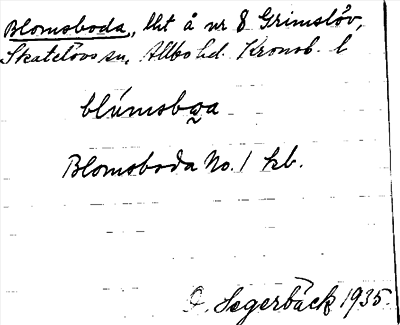 Blomsboda, lht å nr 8 Grimslöv,
Skatelövs sn, Allbo hd. Kronob. l
blúmsbo̰a
Blomsboda No. 1 kb.
O. Segerbäck 1935.